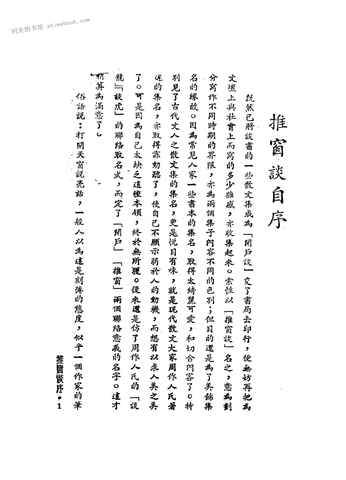 推窗談自序
既然已將談書的一些散文集成為「閉戶談」交了書局去印行,便無妨再把為
文壇上與社會上而寫的多少雜感,亦收集起來。索性以「推窗談」名之,意為劃
分寫作不同時期的界限,亦為兩個集子內容不同的色別;但目的還是為了美飾集
名的緣故。因為常見人家一些書本的集名,取得太綺麗可愛,和切合內容了。特
別見了古代文人之散文集的集名,更是悅目有味,就是現代散文大家周作人氏著
述的集名,亦取得動聽了,使自己不願示弱於人的動機,而想有以求人美之美
了。可是因為自己太缺乏這種本領,終於無所獲。後來還是仿了周作人氏的「談
龍」「談虎」的聯絡取名式,而定了「閉戶」「推窗」兩個聯絡意義的名字。這才
稍算為滿意了。
俗語說:打開天窗說亮話,一般人以為這是刻薄的態度,似乎一個作家的筆
推窗談序·1